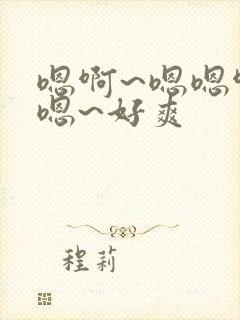 嗯啊~嗯嗯
嗯~好爽
程莉